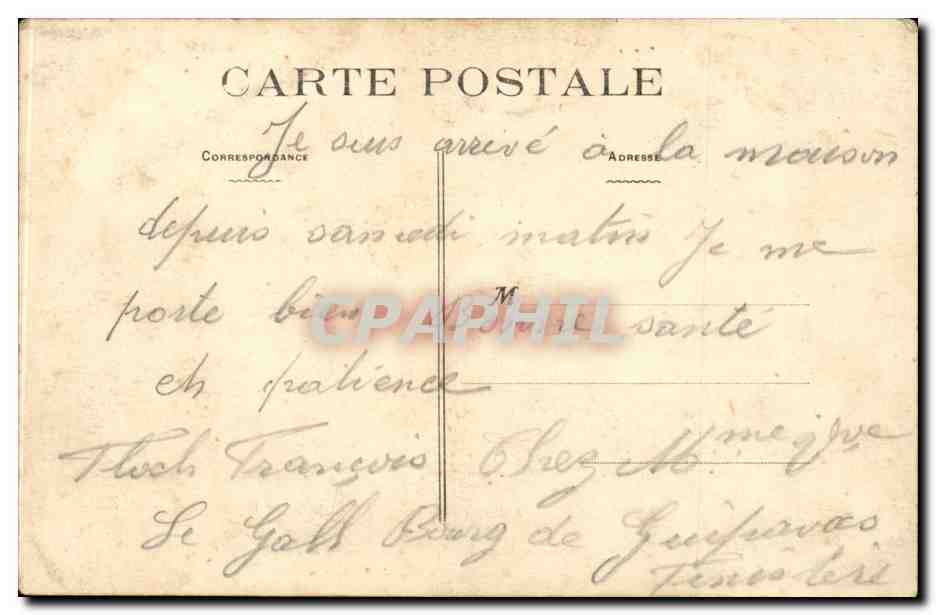 CARTE POSTALE
CORRESPONDANCE
ADRESSE
Je suis arrivé à la maison
depuis samedi matin Je me
M
porte bien Bonne santé
CPAPHIL
et patience
François Chez Mme
Le Gall Bourg de Guipavas
Finistère